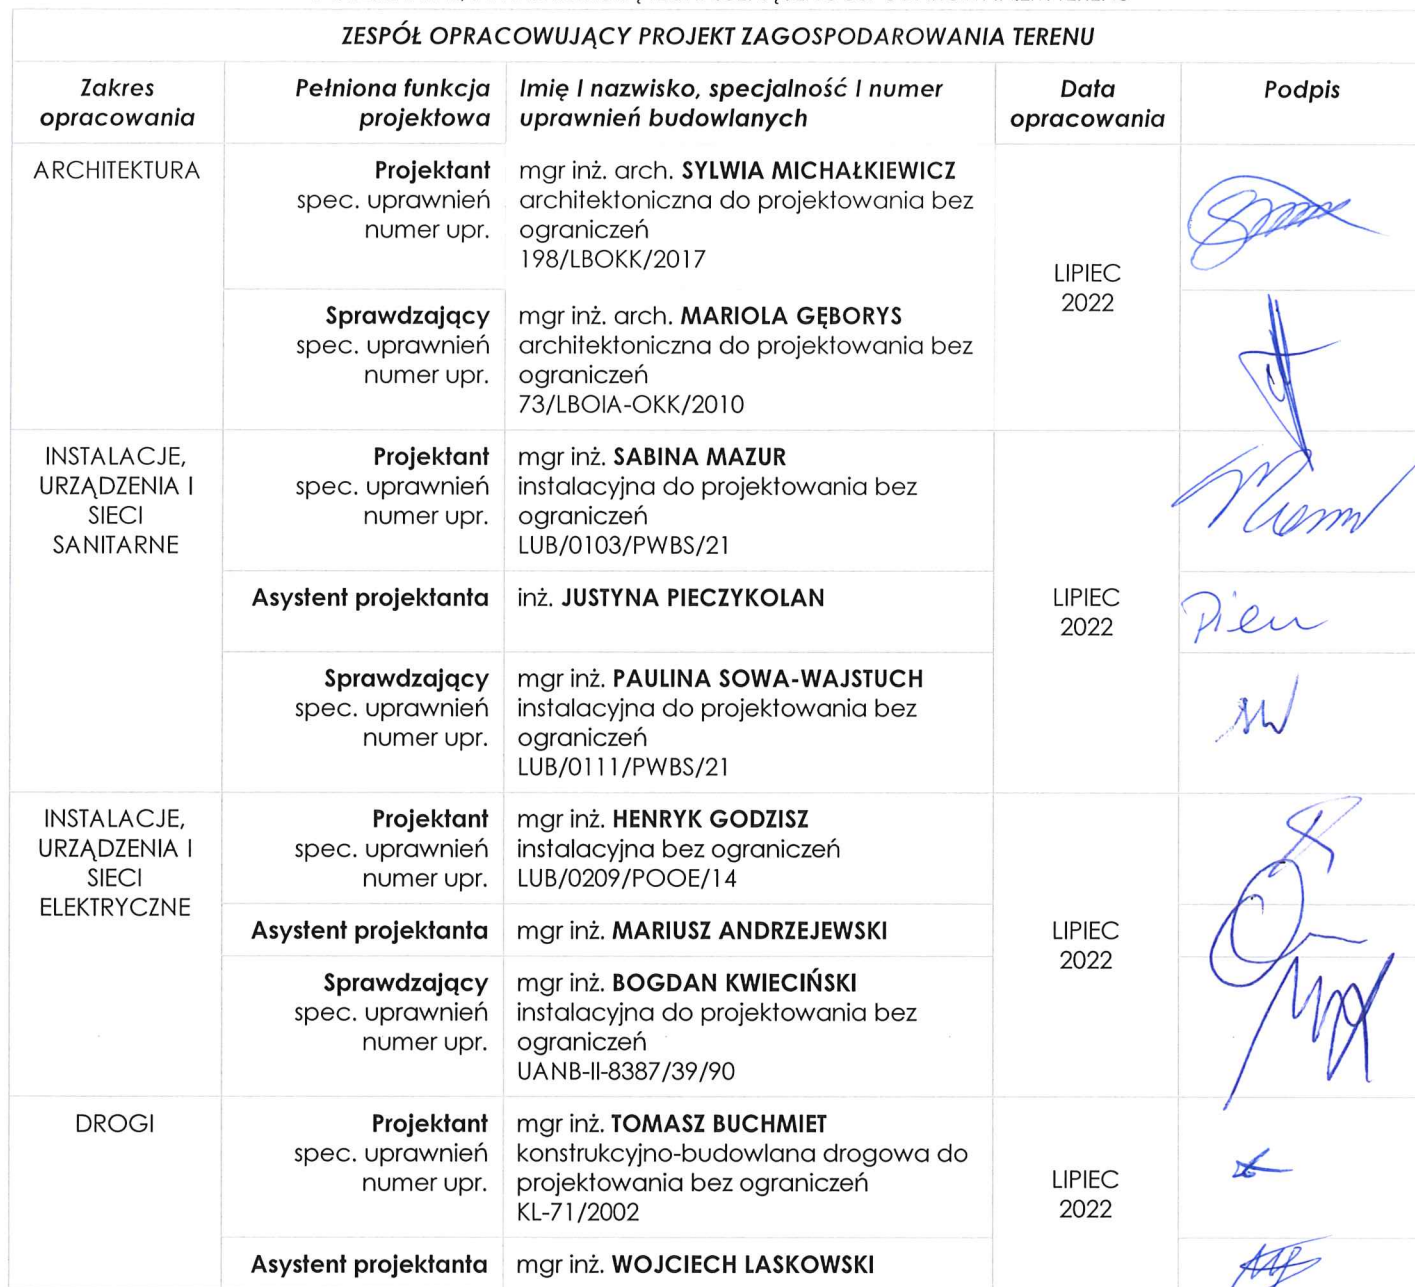 ZESPÓŁ OPRACOWUJĄCY PROJEKT ZAGOSPODAROWANIA TERENU
Zakres
opracowania
Pełniona funkcja
projektowa
Imię I nazwisko, specjalność I numer
uprawnień budowlanych
Data
opracowania
Podpis
ARCHITEKTURA
Projektant
spec. uprawnień
numer upr.
mgr inż. arch. SYLWIA MICHAŁKIEWICZ
architektoniczna do projektowania bez
ograniczeń
198/LBOKK/2017
LIPIEC
2022
Sprawdzający
spec. uprawnień
numer upr.
mgr inż. arch. MARIOLA GĘBORYS
architektoniczna do projektowania bez
ograniczeń
73/LBOIA-OKK/2010
INSTALACJE,
URZĄDZENIA I
SIECI
SANITARNE
Projektant
spec. uprawnień
numer upr.
mgr inż. SABINA MAZUR
instalacyjna do projektowania bez
ograniczeń
LUB/0103/PWBS/21
Asystent projektanta
inż. JUSTYNA PIECZYKOLAN
LIPIEC
2022
Sprawdzający
spec. uprawnień
numer upr.
mgr inż. PAULINA SOWA-WAJSTUCH
instalacyjna do projektowania bez
ograniczeń
LUB/0111/PWBS/21
INSTALACJE,
URZĄDZENIA I
SIECI
ELEKTRYCZNE
Projektant
spec. uprawnień
numer upr.
mgr inż. HENRYK GODZISZ
instalacyjna bez ograniczeń
LUB/0209/POOE/14
Asystent projektanta
mgr inż. MARIUSZ ANDRZEJEWSKI
LIPIEC
2022
Sprawdzający
spec. uprawnień
numer upr.
mgr inż. BOGDAN KWIECIŃSKI
instalacyjna do projektowania bez
ograniczeń
UANB-II-8387/39/90
DROGI
Projektant
spec. uprawnień
numer upr.
mgr inż. TOMASZ BUCHMIET
konstrukcyjno-budowlana drogowa do
projektowania bez ograniczeń
KL-71/2002
LIPIEC
2022
Asystent projektanta
mgr inż. WOJCIECH LASKOWSKI